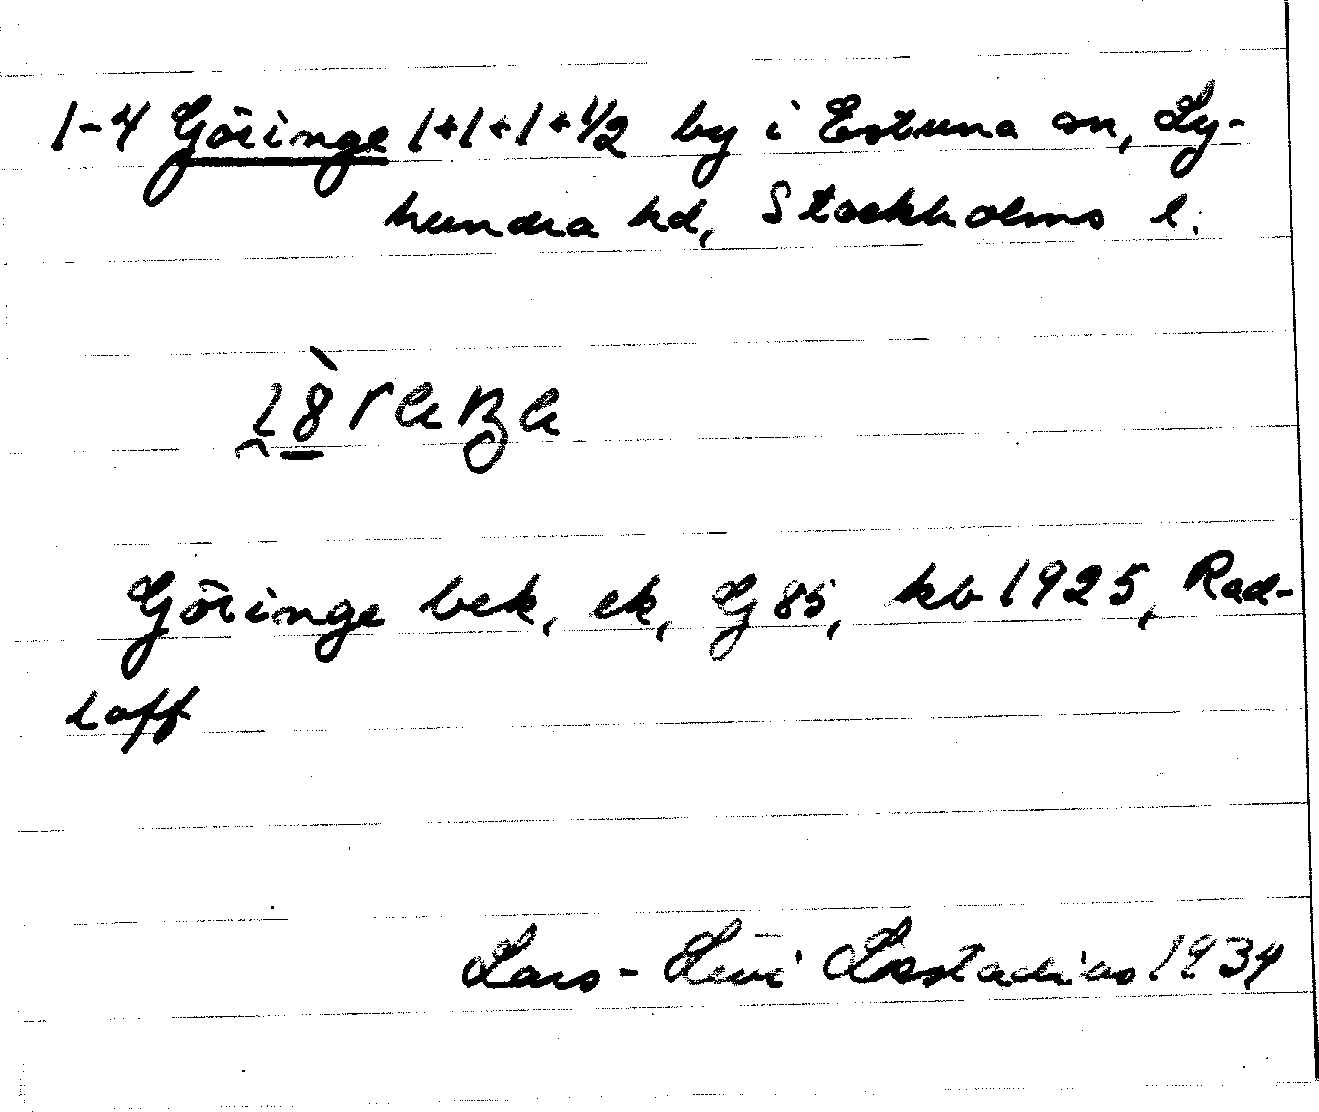 1-4 Göringe 1+1+1+1/2 by i Estuna sn, Ly-
hundra hd, Stockholms l.
Göringe bek, ek, G 85, kb 1925, Rad-
loff
Lars-Levi Læstadius 1934